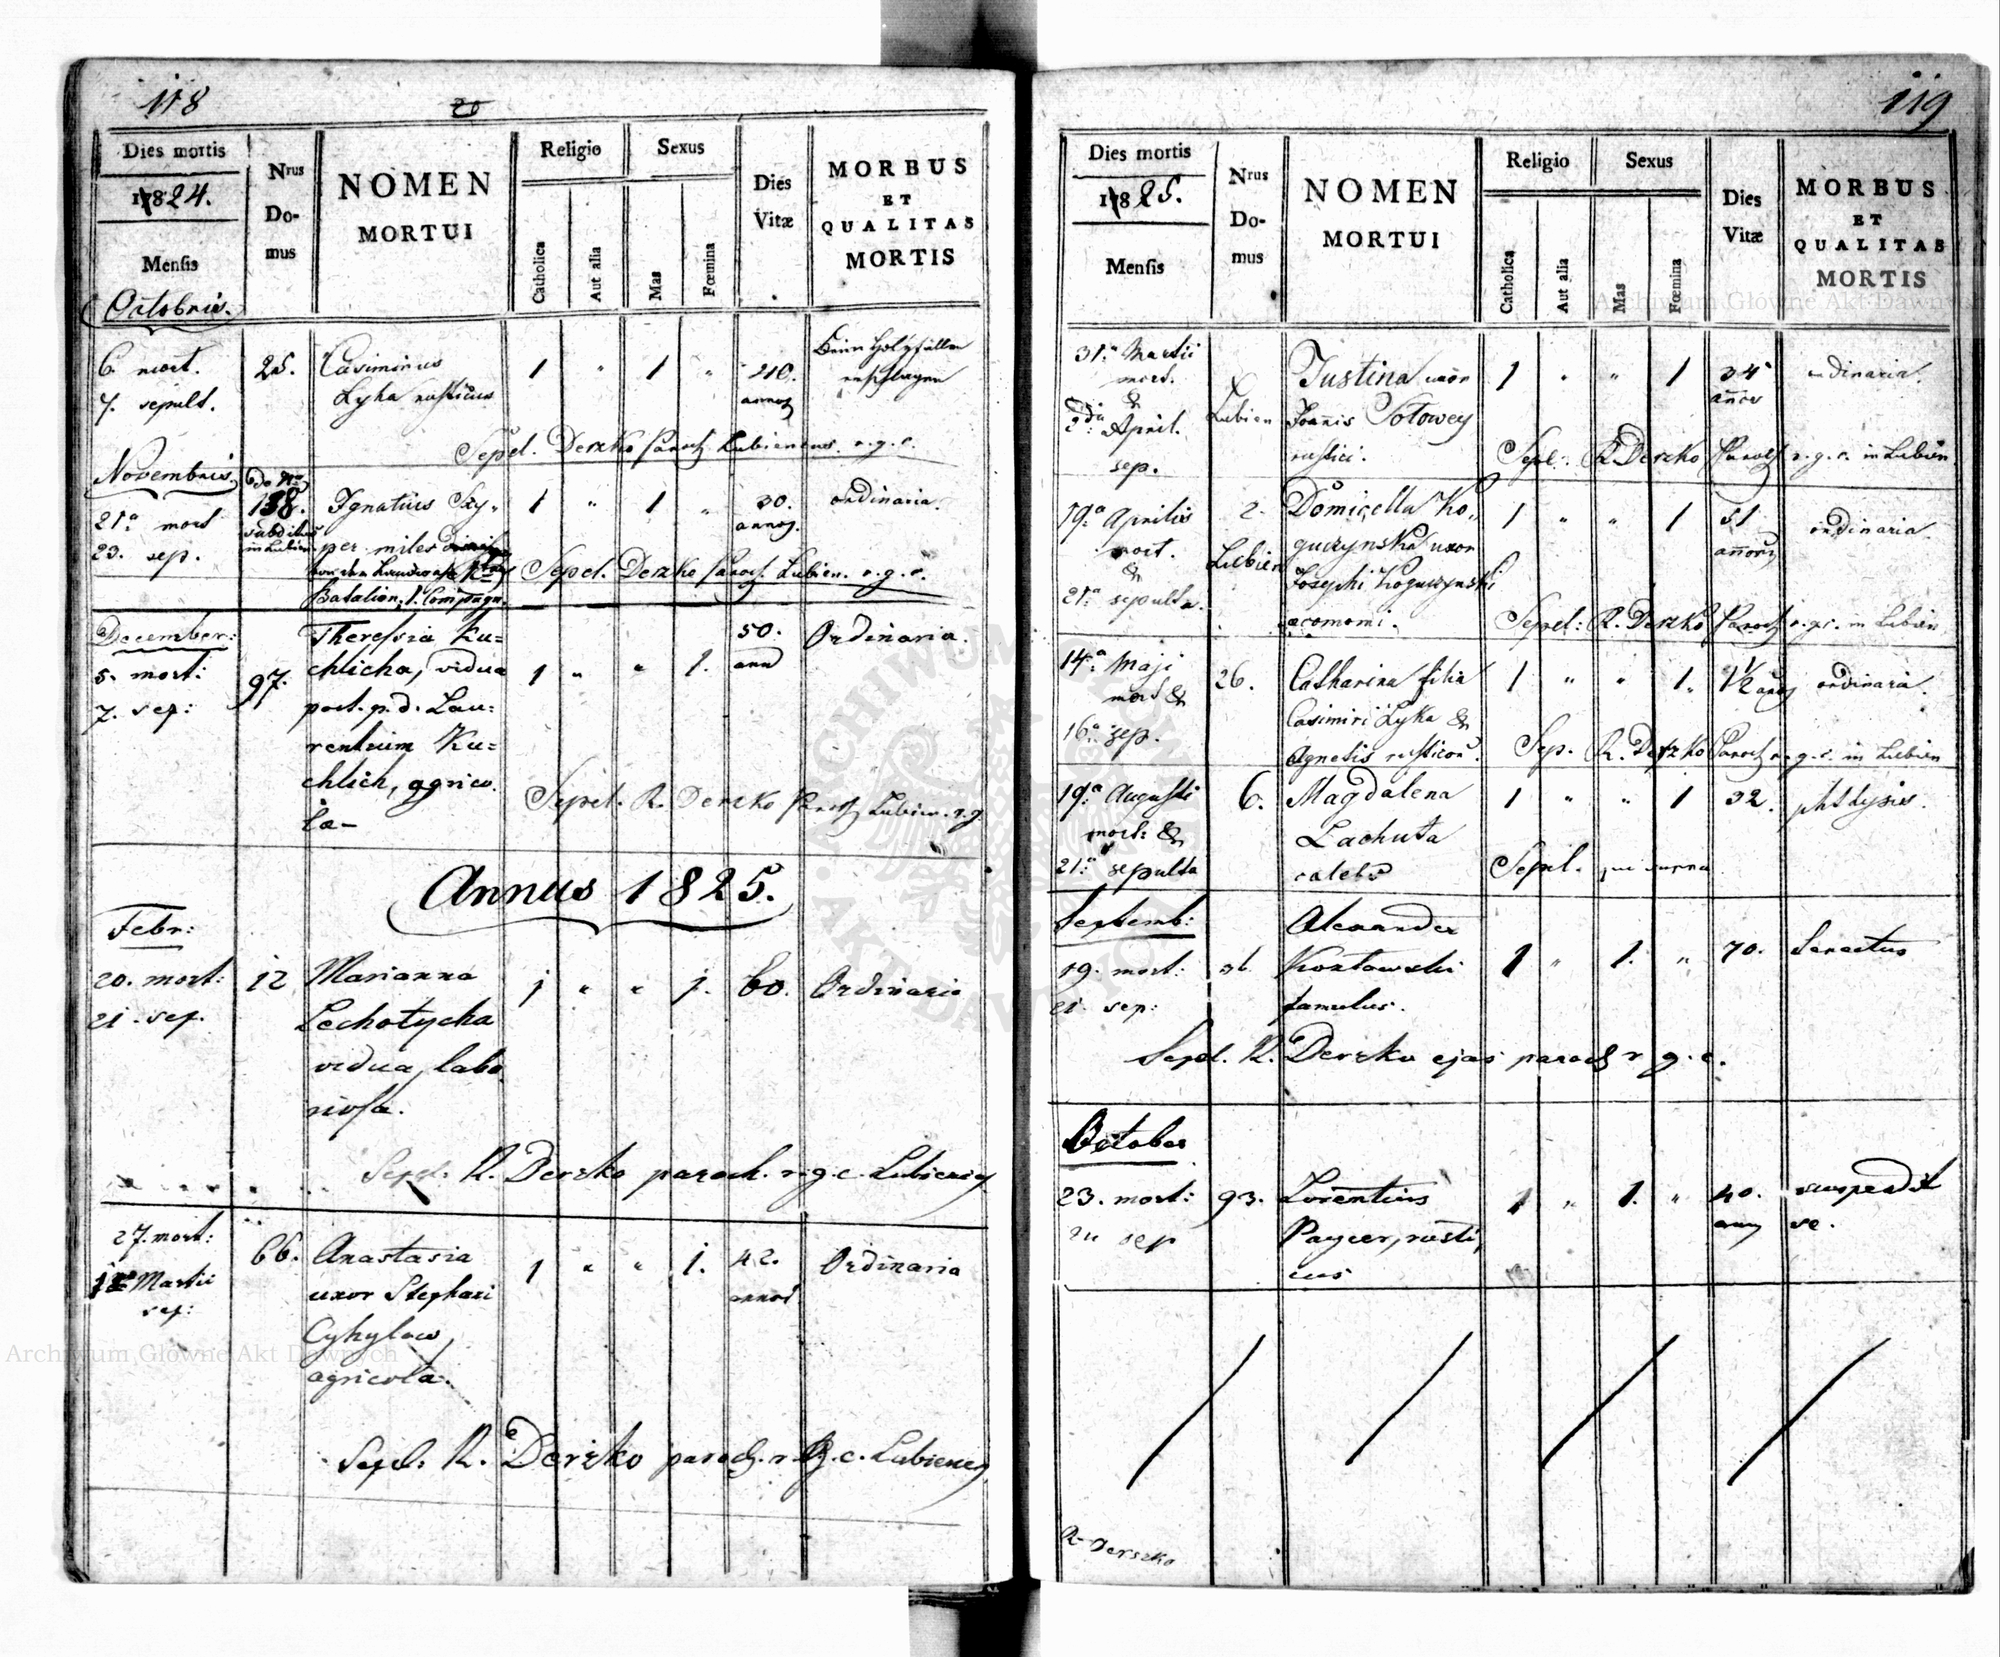 118
20
Dies mortis
1824.
Mensis
Octobris.
Nrus
Do-
mus
NOMEN
MORTUI
Religio
Catholica
Aut alia
Sexus
Mas
Fœmina
Dies
Vitæ
MORBUS
ET
QUALITAS
MORTIS
6. mort. 25. Casimirus 1 " 1 "
7. sepult. Lyka rusticus
Sepel. Derzko Paroch Lubienens. r.g.c.
Novembris
21a mort 138. Ignatius Szy, 1 " 1 " 30. ordinaria.
23. sep. per miles
Sepel. Derzko Paroch. Lubien. r.g.c.
Batalion, 1. Compagn.
December: Theressia Ku= 50. Ordinaria.
5. mort: 97. chlicha, vidua 1 " " 1. ann
7. sep: post. p.d. Lau=
rentium Ku=
chlich, agrico
la-
Sepel. R. Derzko Paroch Lubien. r.g.
Annus 1825.
Febr:
20. mort: 12 Marianna 1 " " 1. 60. Ordinaria
21. sep. Lechotycka
vidua, labo
riosa.
Sepel. R. Derzko paroch. r.g.c. Lubienen
27. mort: 66. Anastasia 1 " " 1. 42. Ordinaria
1ma Martii uxor Stephani annos
sep: Cyhylow,
agricola.
Sepel. R. Derzko paroch. r.g.c. Lubienen
119
Dies mortis
1825.
Mensis
Nrus
Do-
mus
NOMEN
MORTUI
Religio
Catholica
Aut alia
Sexus
Mas
Fœmina
Dies
Vitæ
MORBUS
ET
QUALITAS
MORTIS
31.a Martii Justina uxor 1 " " 1 34 ordinaria.
mort. annor
& Lubien Joannis Sotowey
2da April. rustici. Sepel: R. Derzko Paroch r.g.c. in Lubien
sep.
19.a Aprilis 2. Domicella Ko, 1 " " 1 51 ordinaria
mort. Lubien guczynska uxor annor
& Josephi Koguczynski
21.a sepulta. oeconomi. Sepel: R. Derzko Paroch r.g.c. in Lubien
14.a Maji 26. Catharina filia 1 " " 1. 1/2 ordinaria.
mort & Casimiri Lyka &
16.a sep. Agnetis rusticor. Sep. R. Derzko Paroch r.g.c. in Lubien
19.a Augusti 6. Magdalena 1 " " 1 32. phtysis.
mort: & Lachuta
21.a sepulta caelebs Sepel. qui supra
Septemb: Alexander
19. mort: 36 Kozlowski 1 " 1. " 70. Senectus
21. sep: famulus.
Sepel. R. Derzko ejus paroch r.g.c.
October
23. mort: 93. Lorentius 1 " 1. " 40. suspendit
sep Paycer, rusti, se.
cus
R. Derszko
Archiwum Główne Akt Dawnych
Archiwum Główne Akt Dawnych
ARCHIWUM GŁÓWNE AKT DAWNYCH